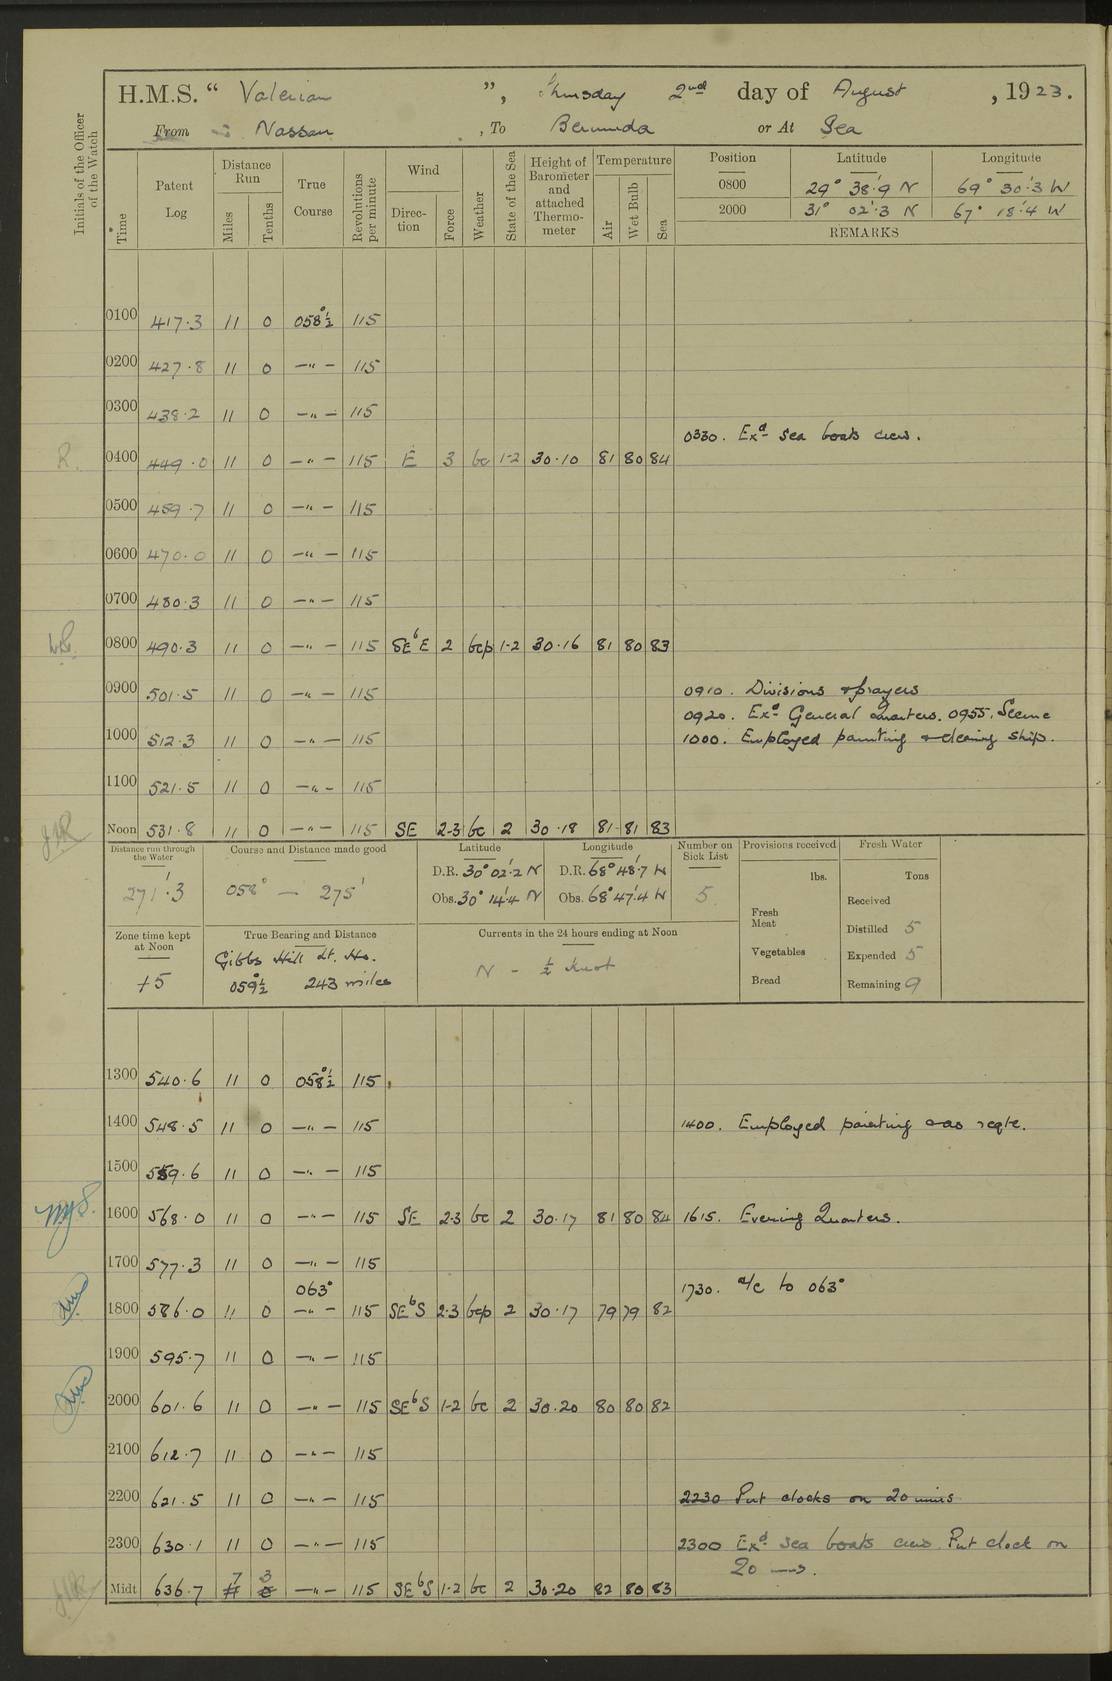 H.M.S. “ Valerian ”, Thursday 2nd day of August, 1923.
From Nassau, To Bermuda or At Sea
Initials of the Officer of the Watch
Time
Patent Log
Distance Run
Miles
Tenths
True Course
Revolutions per minute
Wind
Direction
Force
Weather
State of the Sea
Height of Barometer and attached Thermometer
Temperature
Air
Wet Bulb
Sea
Position Latitude Longitude
0800 29° 38'·9 N 69° 30'·3 W
2000 31° 02'·3 N 67° 18'·4 W
REMARKS
0100 417·3 11 0 058°½ 115
0200 427·8 11 0 —"— 115
0300 438·2 11 0 —"— 115
0330. Exd sea boats crew.
R. 0400 449·0 11 0 —"— 115 E 3 bc 1-2 30·10 81 80 84
0500 459·7 11 0 —"— 115
0600 470·0 11 0 —"— 115
0700 480·3 11 0 —"— 115
0800 490·3 11 0 —"— 115 SEbE 2 bcp 1-2 30·16 81 80 83
0900 501·5 11 0 —"— 115 0910. Divisions & prayers
0920. Exd General Quarters. 0955. Secure
1000 512·3 11 0 —"— 115 1000. Employed painting & cleaning ship.
1100 521·5 11 0 —"— 115
Noon 531·8 11 0 —"— 115 SE 2-3 bc 2 30·18 81 81 83
Distance run through the Water
271'·3
Course and Distance made good
058° — 275'
Latitude
D.R. 30° 02'·2 N
Obs. 30° 14'·4 N
Longitude
D.R. 68° 48'·7 W
Obs. 68° 47'·4 W
Number on Sick List
5
Provisions received
lbs.
Fresh Meat
Vegetables
Bread
Fresh Water
Tons
Received
Distilled 5
Expended 5
Remaining 9
Zone time kept at Noon
+5
True Bearing and Distance
Gibbs Hill Lt. Ho.
059°½ 243 miles
Currents in the 24 hours ending at Noon
N - ½ knot
1300 540·6 11 0 058°½ 115
1400 548·5 11 0 —"— 115 1400. Employed painting & as reqte.
1500 559·6 11 0 —"— 115
1600 568·0 11 0 —"— 115 SE 2-3 bc 2 30·17 81 80 84 1615. Evening Quarters.
1700 577·3 11 0 —"— 115
063° 1730. a/c to 063°
1800 586·0 11 0 —"— 115 SEbS 2-3 bcp 2 30·17 79 79 82
1900 595·7 11 0 —"— 115
2000 601·6 11 0 —"— 115 SEbS 1-2 bc 2 30·20 80 80 82
2100 612·7 11 0 —"— 115
2200 621·5 11 0 —"— 115 2230 Put clocks on 20 mins
2300 630·1 11 0 —"— 115 2300 Exd sea boats crew. Put clock on
20 mins.
Midt 636·7 7 3 —"— 115 SEbS 1-2 bc 2 30·20 82 80 83